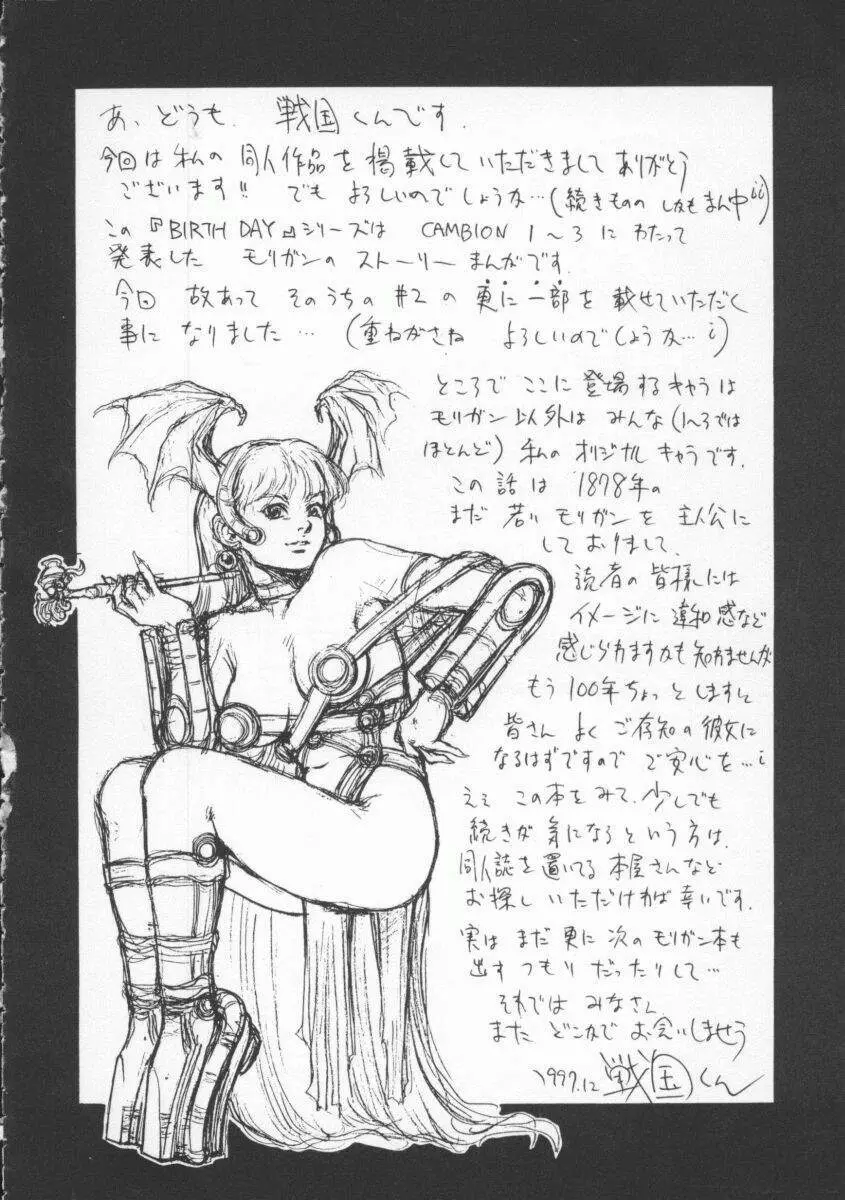 あ、どうも、戦国くんです。
今回は私の同人作品を掲載していただきましてありがとう
ございます!! でもよろしいのでしょうか…(続きもの しかもまん中ii)
この『BIRTH DAY』シリーズは CAMBION 1〜3 にわたって
発表した モリガンの ストーリーまんがです。
今回 故あって そのうちの #2 の 更に一部を 載せていただく
事に なりました… (重ねがさね よろしいのでしょうか…i)
ところで ここに 登場するキャラは
モリガン以外は みんな(1〜3では
ほとんど) 私の オリジナルキャラです。
この話は 1878年の
まだ 若い モリガンを 主人公に
しておりまして、
読者の皆様には
イメージに 違和感など
感じられますかも知れませんが
もう 100年ちょっと しますと
皆さん よく ご存知の彼女に
なるはずですので ご安心を…i
ええ この本をみて、少しでも
続きが 気になる という方は、
同人誌を置いてる 本屋さんなど
お探し いただければ 幸いです。
実は まだ 更に 次の モリガン本も
出す つもり だったりして…
それでは みなさん
また どこかで お会いしませう
1997.12 戦国くん